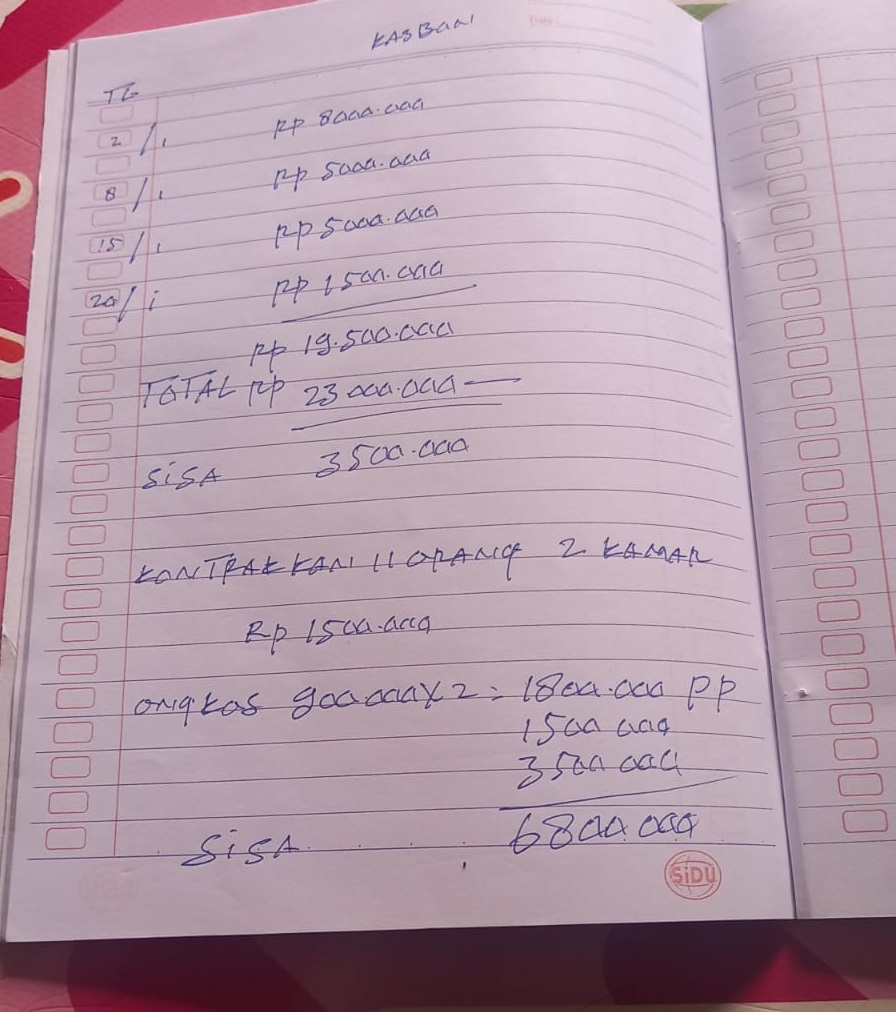 KASBAAN
TG
2/1 Rp 8000.000
8/1 Rp 5000.000
15/1 Rp 5000.000
20/1 Rp 1500.000
Rp 19.500.000
TOTAL Rp 23000.000 —
SiSA 3500.000
KONTRAKKAN 11 ORANG 2 KAMAR
Rp 1500.000
ongkos 900.000 X 2 = 1800.000 PP
1500 000
3500 000
SiSA 6800.000
SiDU